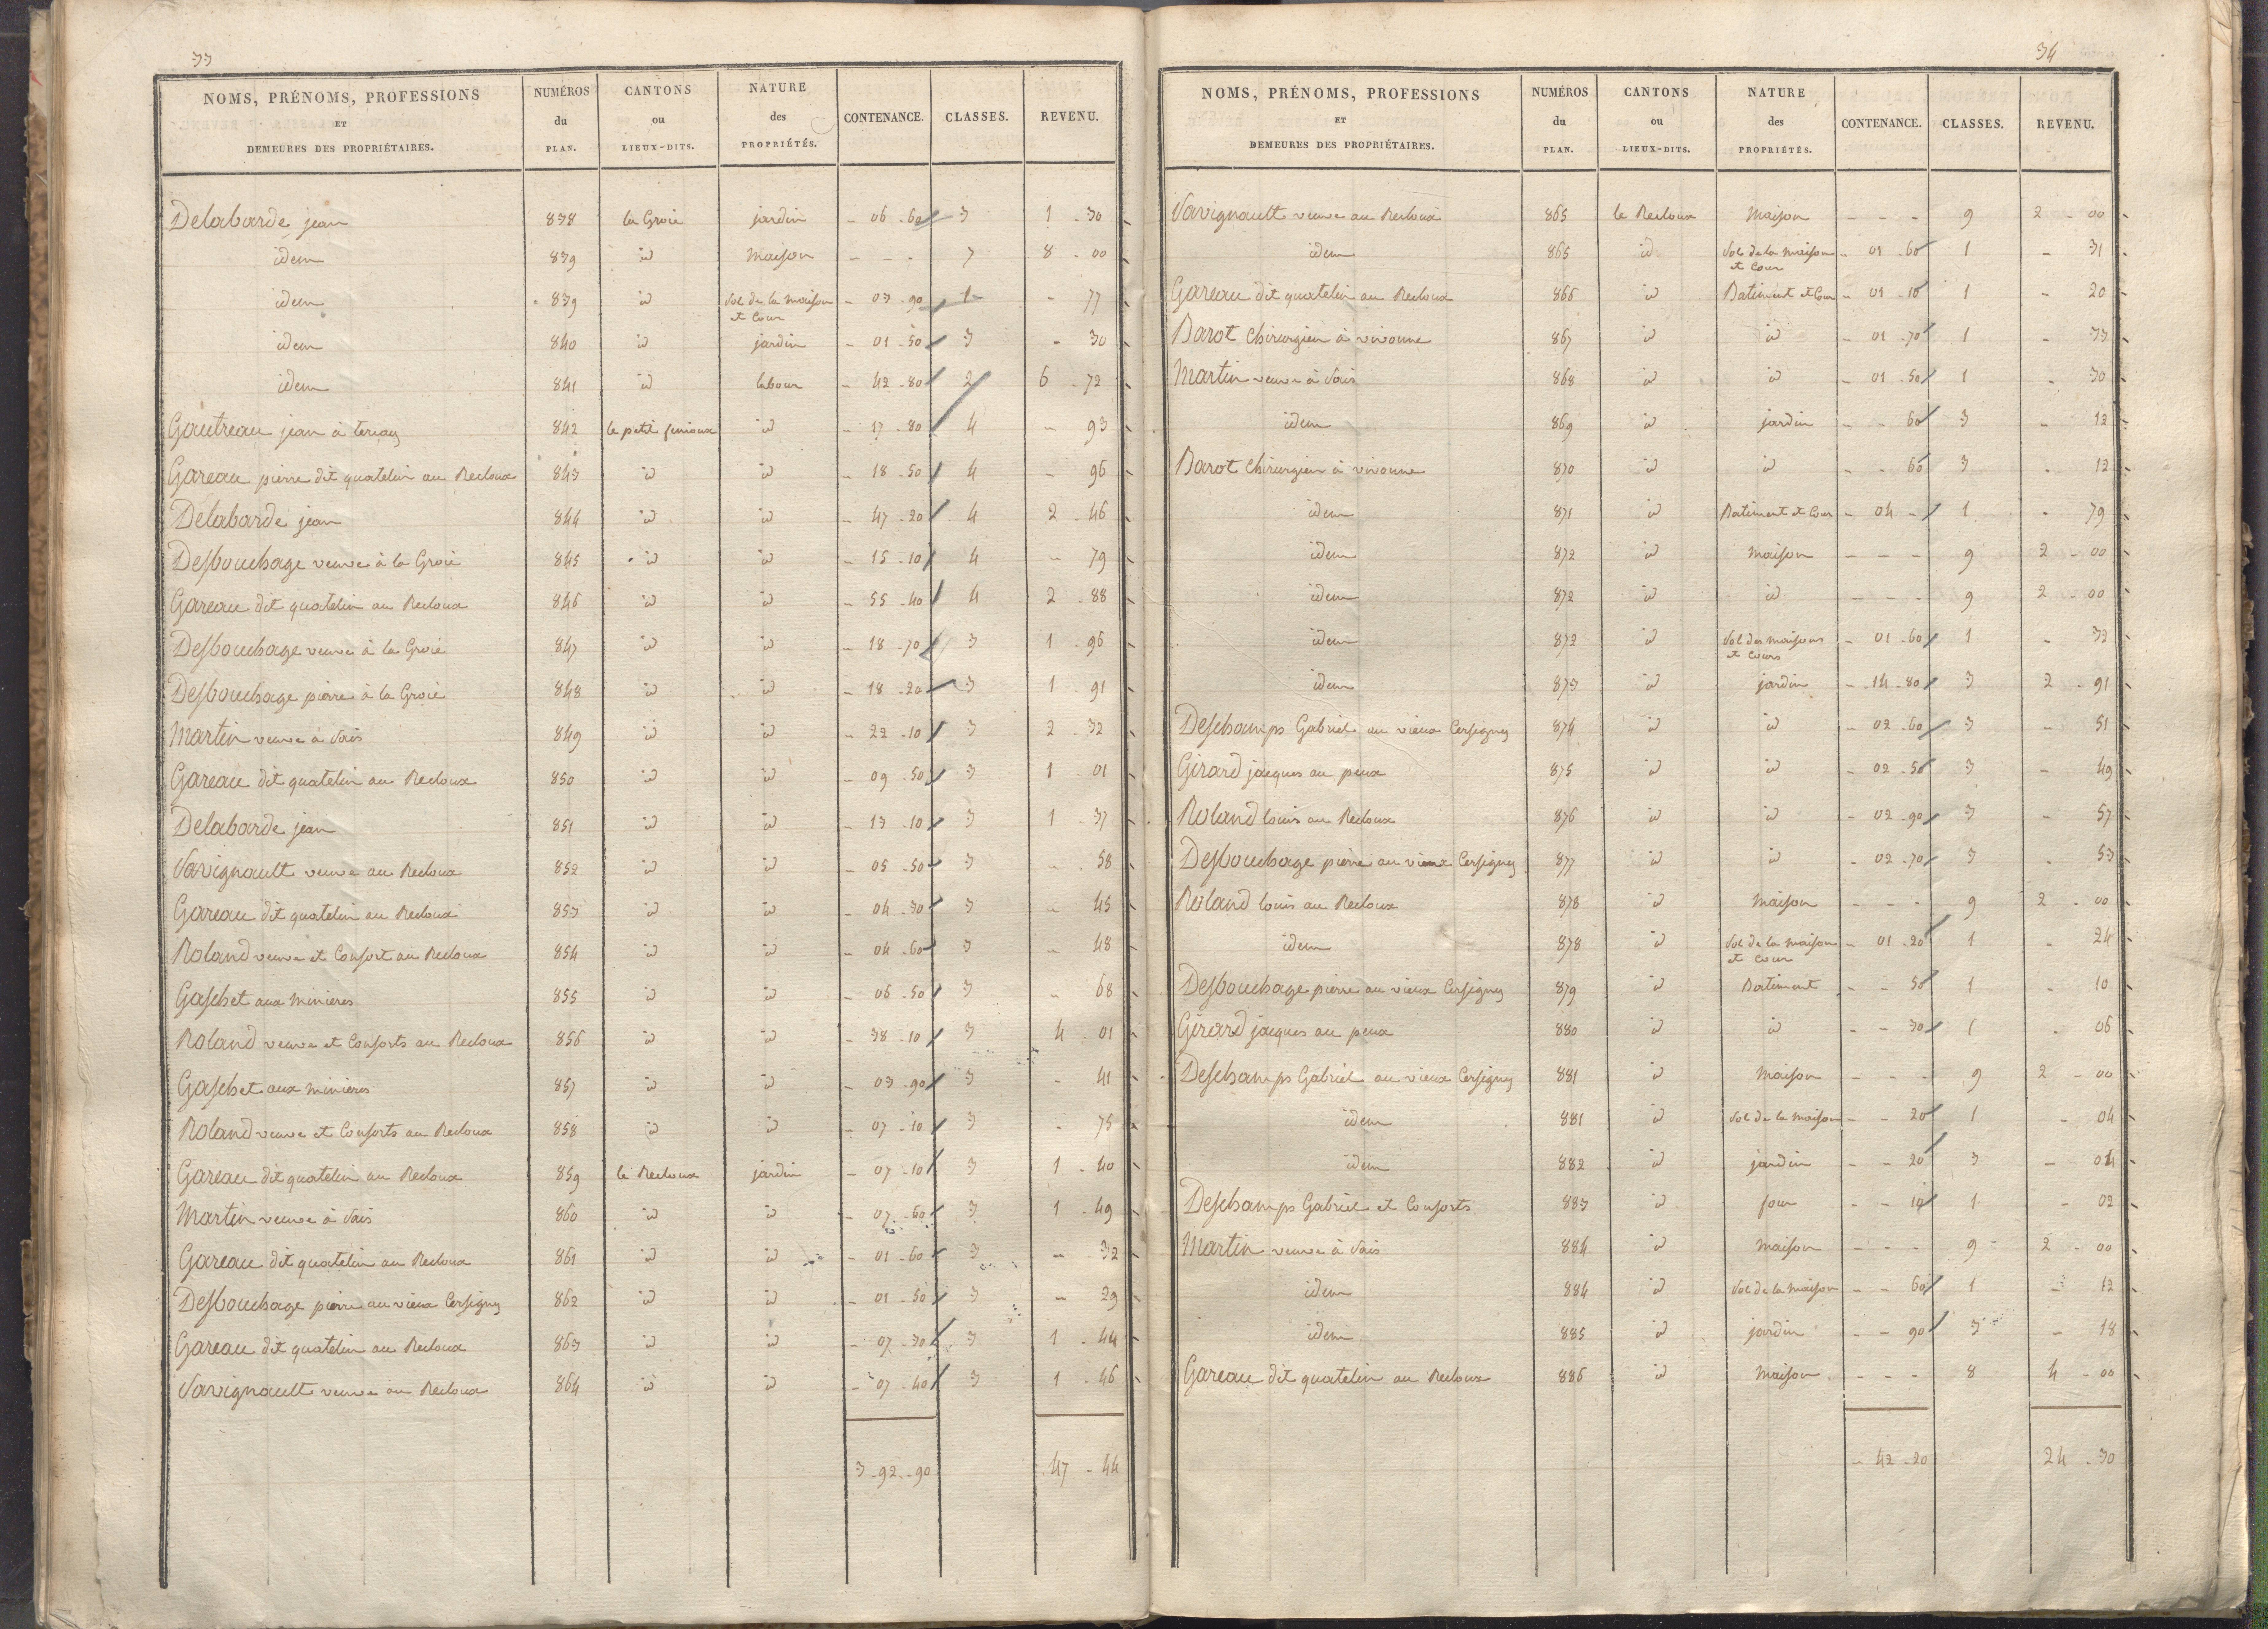 33
NOMS, PRÉNOMS, PROFESSIONS ET DEMEURES DES PROPRIÉTAIRES. NUMÉROS du PLAN. CANTONS ou LIEUX-DITS. NATURE des PROPRIÉTÉS. CONTENANCE. CLASSES. REVENU.
Delabarde jean 838 la Groie jardin - 06 - 60 3 1 - 30
idem 839 id Maison - - - 7 8 - 00
idem 839 id Sol de la maison et Cour - 03 - 90 1 - 77
idem 840 id jardin - 01 - 50 3 - 30
idem 841 id labour - 42 - 80 2 6 - 72
Gautreau jean à ternay 842 le petit fenioux id - 17 - 80 4 - 93
Gareau pierre dit quatelin au Recloux 843 id id - 18 - 50 4 - 96
Delabarde jean 844 id id - 47 - 20 4 2 - 46
Desbouchage veuve à la Groie 845 id id - 15 - 10 4 - 79
Gareau dit quatelin au Recloux 846 id id - 55 - 40 4 2 - 88
Desbouchage veuve à la Groie 847 id id - 18 - 70 3 1 - 96
Desbouchage pierre à la Groie 848 id id - 18 - 20 3 1 - 91
Martin veuve à Sais 849 id id - 22 - 10 3 2 - 32
Gareau dit quatelin au Recloux 850 id id - 09 - 50 3 1 - 01
Delabarde jean 851 id id - 13 - 10 3 1 - 37
Savignault veuve au Recloux 852 id id - 05 - 50 3 - 58
Gareau dit quatelin au Recloux 853 id id - 04 - 30 3 - 45
Roland veuve et Consort au Recloux 854 id id - 04 - 60 3 - 48
Gaschet aux minieres 855 id id - 06 - 50 3 - 68
Roland veuve et Consorts au Recloux 856 id id - 38 - 10 3 4 - 01
Gaschet aux minieres 857 id id - 03 - 90 3 - 41
Roland veuve et Consorts au Recloux 858 id id - 07 - 10 3 - 75
Gareau dit quatelin au Recloux 859 le Recloux jardin - 07 - 10 3 1 - 40
Martin veuve à Sais 860 id id - 07 - 60 3 1 - 49
Gareau dit quatelin au Recloux 861 id id - 01 - 60 3 - 32
Desbouchage pierre au vieux Cersigny 862 id id - 01 - 50 3 - 29
Gareau dit quatelin au Recloux 863 id id - 07 - 30 3 1 - 44
Savignault veuve au Recloux 864 id id - 07 - 40 3 1 - 46
3 - 92 - 90 47 - 44
34
NOMS, PRÉNOMS, PROFESSIONS ET DEMEURES DES PROPRIÉTAIRES. NUMÉROS du PLAN. CANTONS ou LIEUX-DITS. NATURE des PROPRIÉTÉS. CONTENANCE. CLASSES. REVENU.
Savignault veuve au Recloux 865 le Recloux Maison - - - 9 2 - 00
idem 865 id Sol de la maison et Cour - 01 - 60 1 - 31
Gareau dit quatelin au Recloux 866 id Batiment et Cour - 01 - 10 1 - 20
Barot Chirurgien à vivonne 867 id id - 01 - 70 1 - 33
Martin veuve à Sais 868 id id - 01 - 50 1 - 30
idem 869 id jardin - - 60 3 - 12
Barot Chirurgien à vivonne 870 id id - - 60 3 - 12
idem 871 id Batiment et Cour - 04 - 1 - 79
idem 872 id Maison - - - 9 2 - 00
idem 872 id id - - - 9 2 - 00
idem 872 id Sol des maisons et Cours - 01 - 60 1 - 32
idem 873 id jardin - 14 - 80 3 2 - 91
Deschamps Gabriel au vieux Cersigny 874 id id - 02 - 60 3 - 51
Girard jacques au peux 875 id id - 02 - 50 3 - 49
Roland louis au Recloux 876 id id - 02 - 90 3 - 57
Desbouchage pierre au vieux Cersigny 877 id id - 02 - 70 3 - 53
Roland louis au Recloux 878 id Maison - - - 9 2 - 00
idem 878 id Sol de la maison et Cour - 01 - 20 1 - 24
Desbouchage pierre au vieux Cersigny 879 id Batiment - - 50 1 - 10
Girard jacques au peux 880 id id - - 30 1 - 06
Deschamps Gabriel au vieux Cersigny 881 id Maison - - - 9 2 - 00
idem 881 id Sol de la maison - - 20 1 - 04
idem 882 id jardin - - 20 3 - 04
Deschamps Gabriel et Consorts 883 id four - - 10 1 - 02
Martin veuve à Sais 884 id Maison - - - 9 2 - 00
idem 884 id Sol de la maison - - 60 1 - 12
idem 885 id jardin - - 90 3 - 18
Gareau dit quatelin au Recloux 886 id Maison - - - 8 4 - 00
- 42 - 20 24 - 30